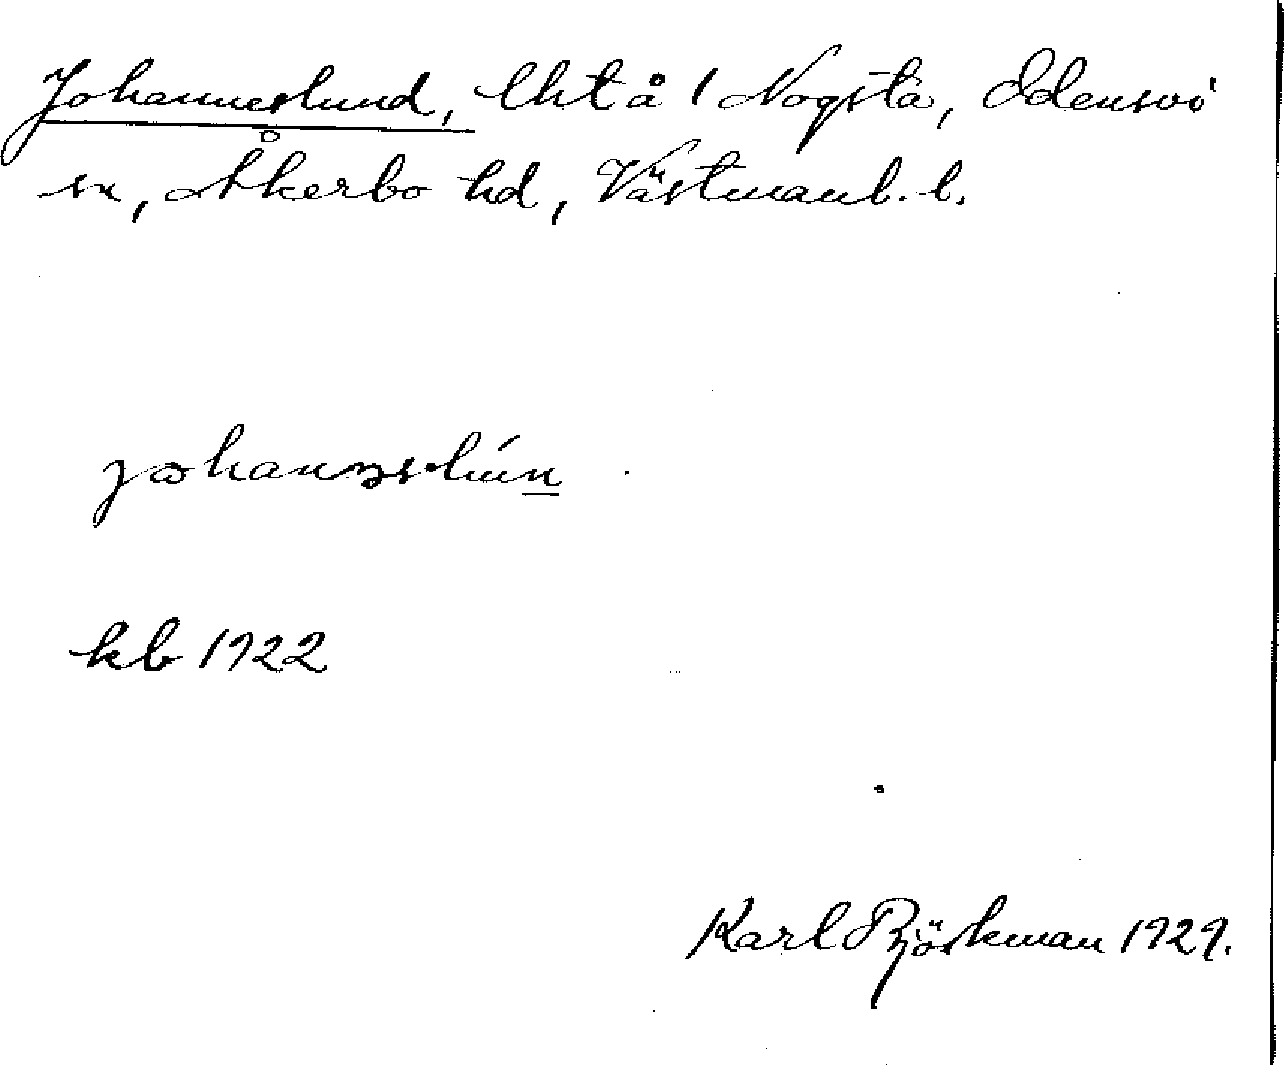 Johanneslund, lht å 1 Nogsta, Odensvi
sn, Åkerbo hd, Västmanl. l.
johanəslún
kb 1922
Karl Björkman 1929.